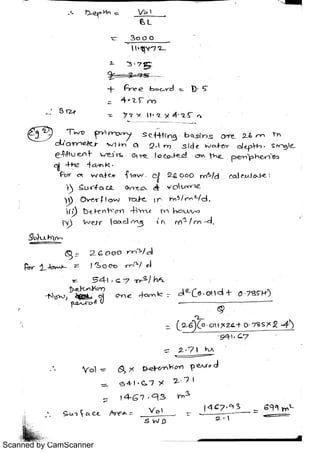 ∴ Depth = Vol / BL
= 3000 / 11.2×72
= 3.75
+ free board = 0.5
= 4.25 m
∴ Size = 72 × 11.2 × 4.25 m
Eg 2) Two primary settling basins are 26 m in
diameter with a 2.1 m side water depth. Single
effluent weirs are located on the peripheries
of the tank.
For a water flow of 26000 m³/d calculate:
i) Surface area & volume
ii) Overflow rate in m³/m²/d,
iii) Detention time in hours
iv) Weir loading in m³/m-d,
Solution
Q = 26000 m³/d
for 1 tank = 13000 m³/d
= 541.67 m³/hr
Now, Detention period of one tank = d²(0.011d + 0.785H) / Q
= (26)²(0.011×26+0.785×2.1) / 541.67
= 2.71 hr
∴ Vol = Q × Detention period
= 541.67 × 2.71
= 1467.93 m³
∴ Surface Area = Vol / SWD = 1467.93 / 2.1 = 699 m²
Scanned by CamScanner